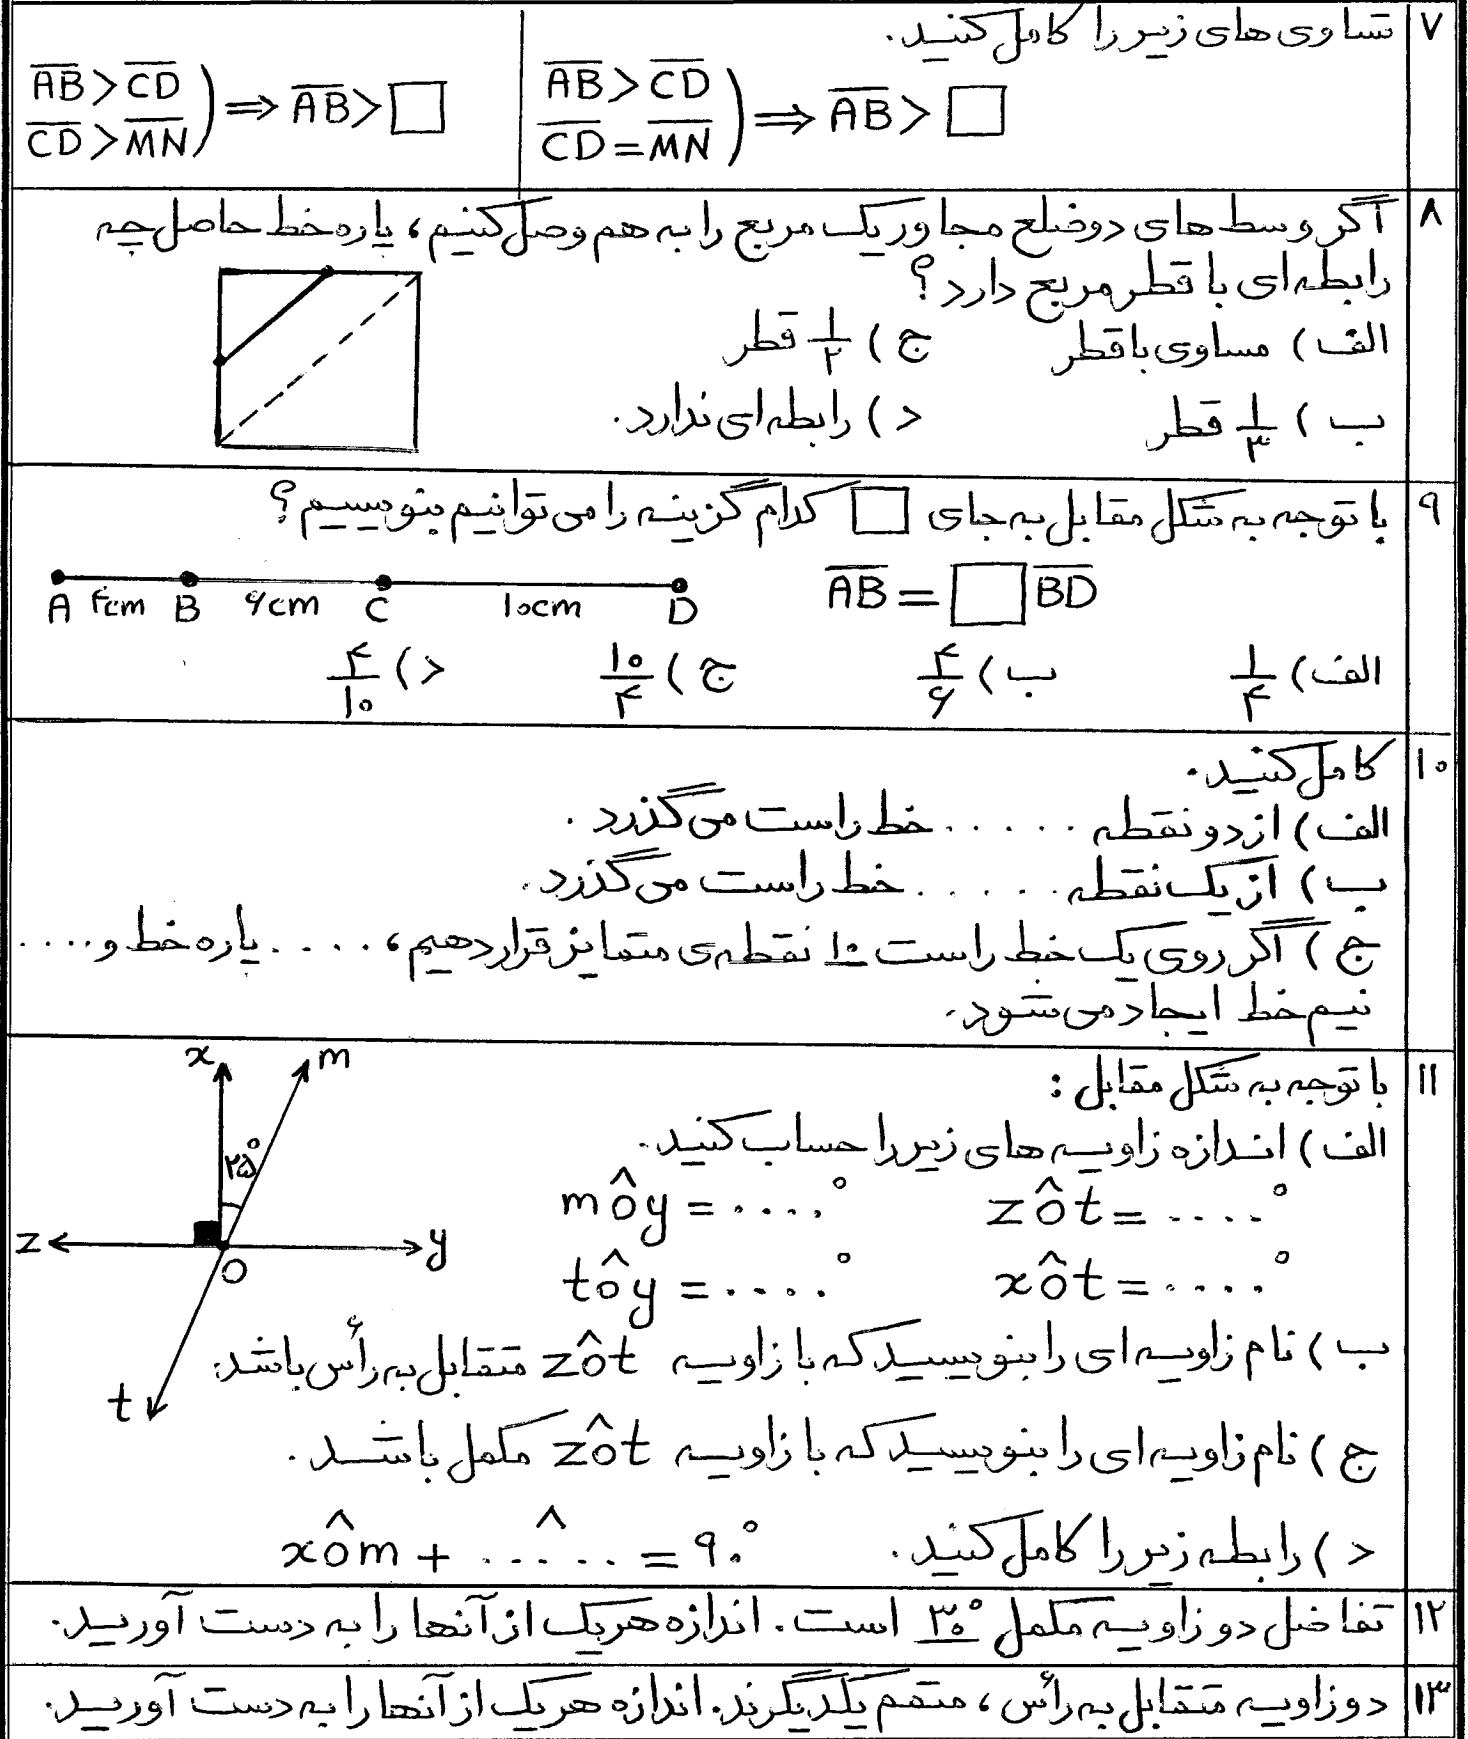 ۷ تساوی های زیر را کامل کنید.
AB > CD
CD = MN ) ⇒ AB > □
AB > CD
CD > MN ) ⇒ AB > □
۸ اگر وسط های دو ضلع مجاور یک مربع را به هم وصل کنیم، پاره خط حاصل چه
رابطه ای با قطر مربع دارد؟
الف) مساوی با قطر ج) ۱/۲ قطر
ب) ۱/۳ قطر د) رابطه ای ندارد.
۹ با توجه به شکل مقابل به جای □ کدام گزینه را می توانیم بنویسیم؟
AB = □ BD
A ۴cm B ۶cm C ۱۰cm D
الف) ۱/۴ ب) ۴/۶ ج) ۱۰/۴ د) ۴/۱۰
۱۰ کامل کنید.
الف) از دو نقطه ..... خط راست می گذرد.
ب) از یک نقطه ..... خط راست می گذرد.
ج) اگر روی یک خط راست ۱۰ نقطه ی متمایز قرار دهیم، .... پاره خط و ....
نیم خط ایجاد می شود.
۱۱ با توجه به شکل مقابل:
الف) اندازه زاویه های زیر را حساب کنید.
zôt = ....° môy = ....°
xôt = ....° tôy = ....°
x m
۲۵°
z O y
t
ب) نام زاویه ای را بنویسید که با زاویه zôt متقابل به رأس باشد.
ج) نام زاویه ای را بنویسید که با زاویه zôt مکمل باشد.
د) رابطه زیر را کامل کنید. xôm + ..^... = ۹۰°
۱۲ تفاضل دو زاویه مکمل ۳۰° است. اندازه هریک از آنها را به دست آورید.
۱۳ دو زاویه متقابل به رأس، متمم یکدیگرند. اندازه هریک از آنها را به دست آورید.